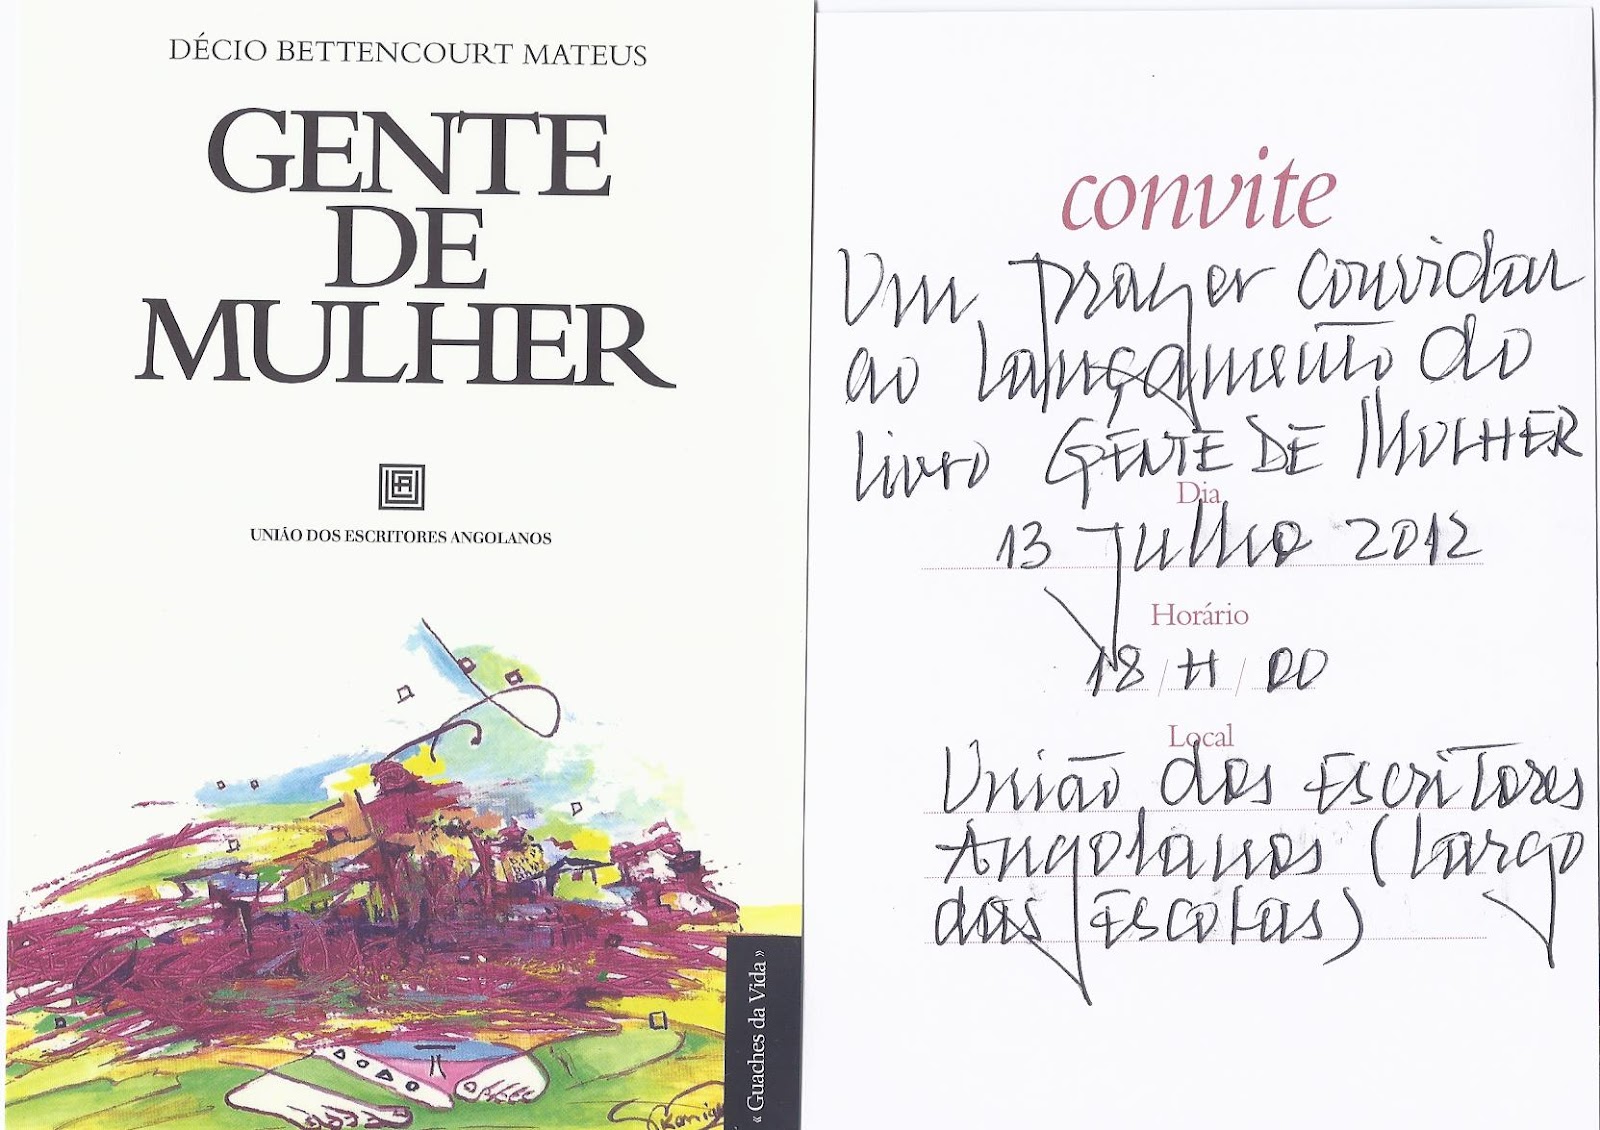 DÉCIO BETTENCOURT MATEUS
GENTE
DE
MULHER
UNIÃO DOS ESCRITORES ANGOLANOS
« Guaches da Vida »
convite
Um prazer convidar
ao lançamento do
livro GENTE DE MULHER
Dia
13 julho 2012
Horário
18 / H / 00
Local
União dos Escritores
Angolanos (Largo
das Escolas)